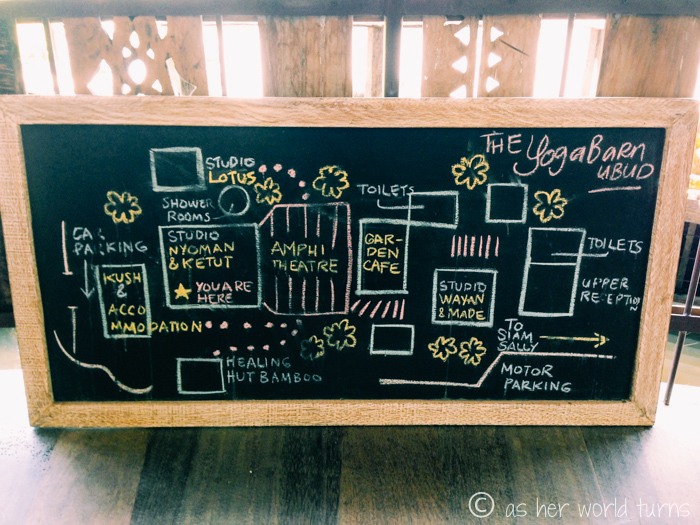 THE YogaBarn
UBUD
STUDIO
LOTUS
SHOWER
ROOMS
TOILETS
CAR
PARKING
STUDIO
NYOMAN
& KETUT
YOU ARE
HERE
AMPHI
THEATRE
GAR-
DEN
CAFE
TOILETS
KUSH
&
ACCO
MMODATION
STUDIO
WAYAN
& MADE
UPPER
RECEPTION
TO
SIAM
SALLY
HEALING
HUT BAMBOO
MOTOR
PARKING
© as her world turns